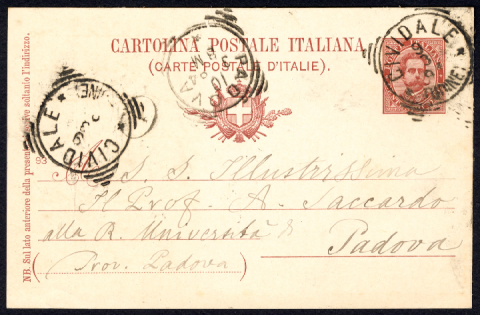 CARTOLINA POSTALE ITALIANA
(CARTE POSTALE D'ITALIE).
CIVIDALE
(UDINE)
PADOVA
CIVIDALE
(UDINE)
93
NB. Sul lato anteriore della presente si scrive soltanto l'indirizzo.
A S. S. Illustrissima
Il Prof. A. Saccardo
alla R. Università di
Padova
(Prov. Padova)